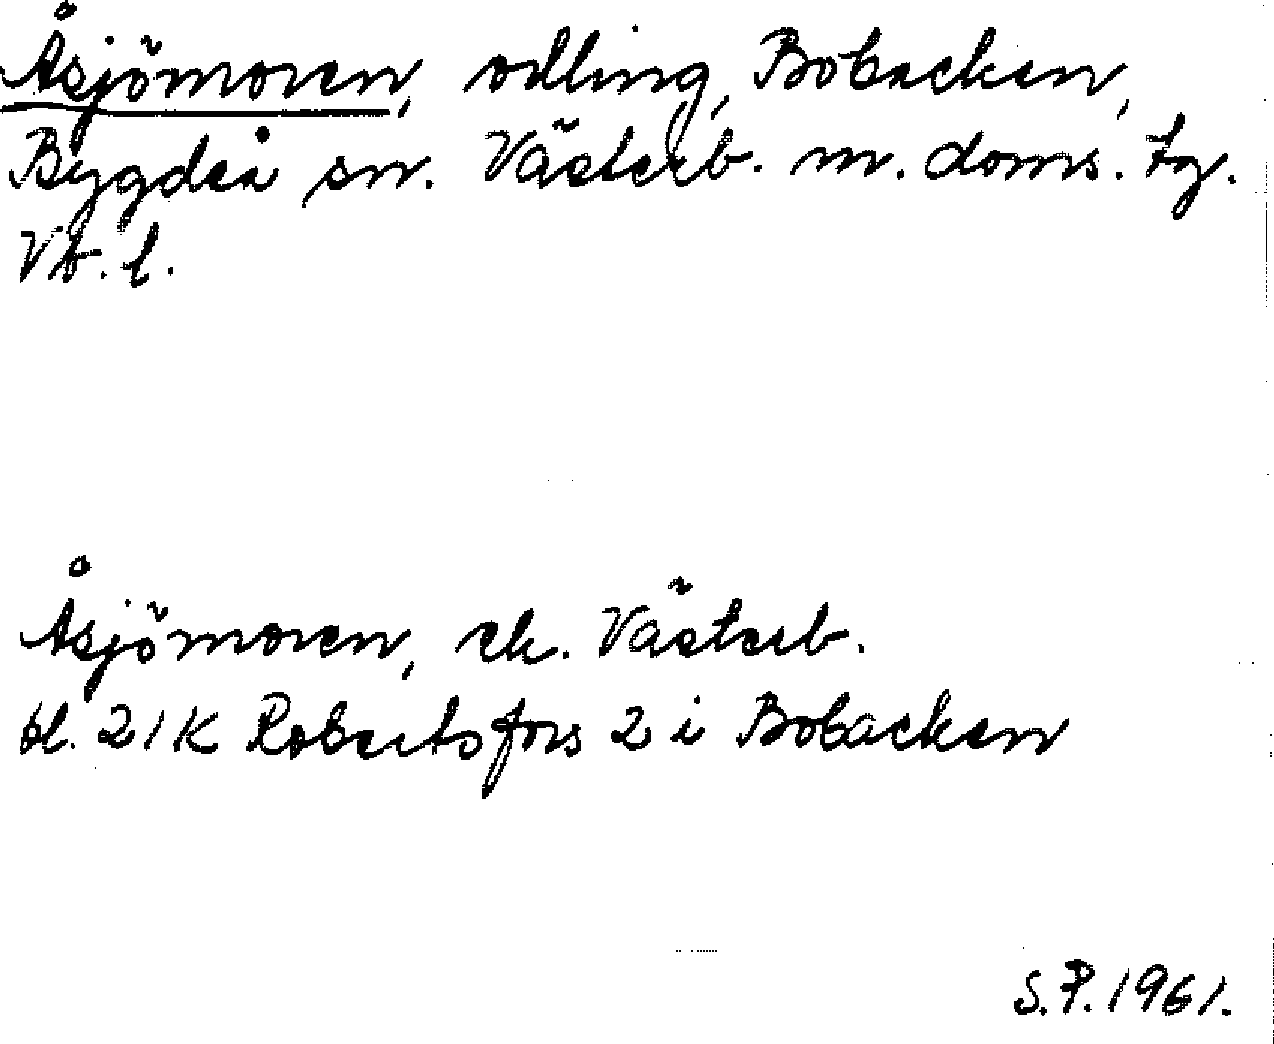 Åsjömoren, odling, Bobacken,
Bygdeå sn. Västerb. m. doms. tg.
Vb. l.
Åsjömoren, ek. Västerb.
bl. 21K Robertsfors 2 i Bobacken
S.P. 1961.